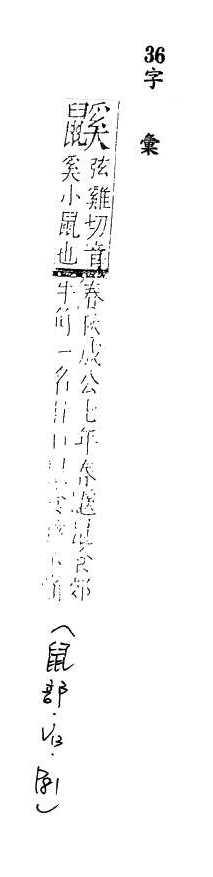 36
字彙
鼷弦雞切音
奚小鼠也
春秋成公七年春鼷鼠食郊
牛角一名甘口鼠食
(鼠部·